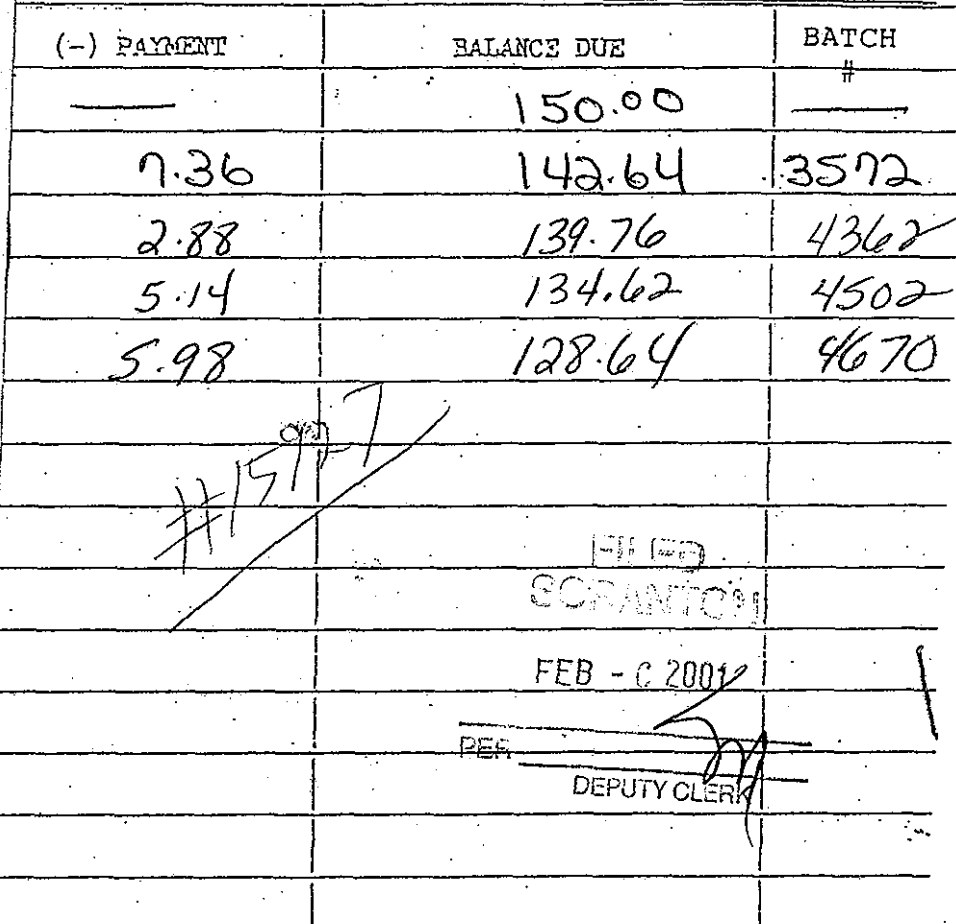 (-) PAYMENT BALANCE DUE BATCH #
— 150.00 —
7.36 142.64 3572
2.88 139.76 4362
5.14 134.62 4502
5.98 128.64 4670
FILED
SCRANTON
FEB - 2001
PER
DEPUTY CLERK